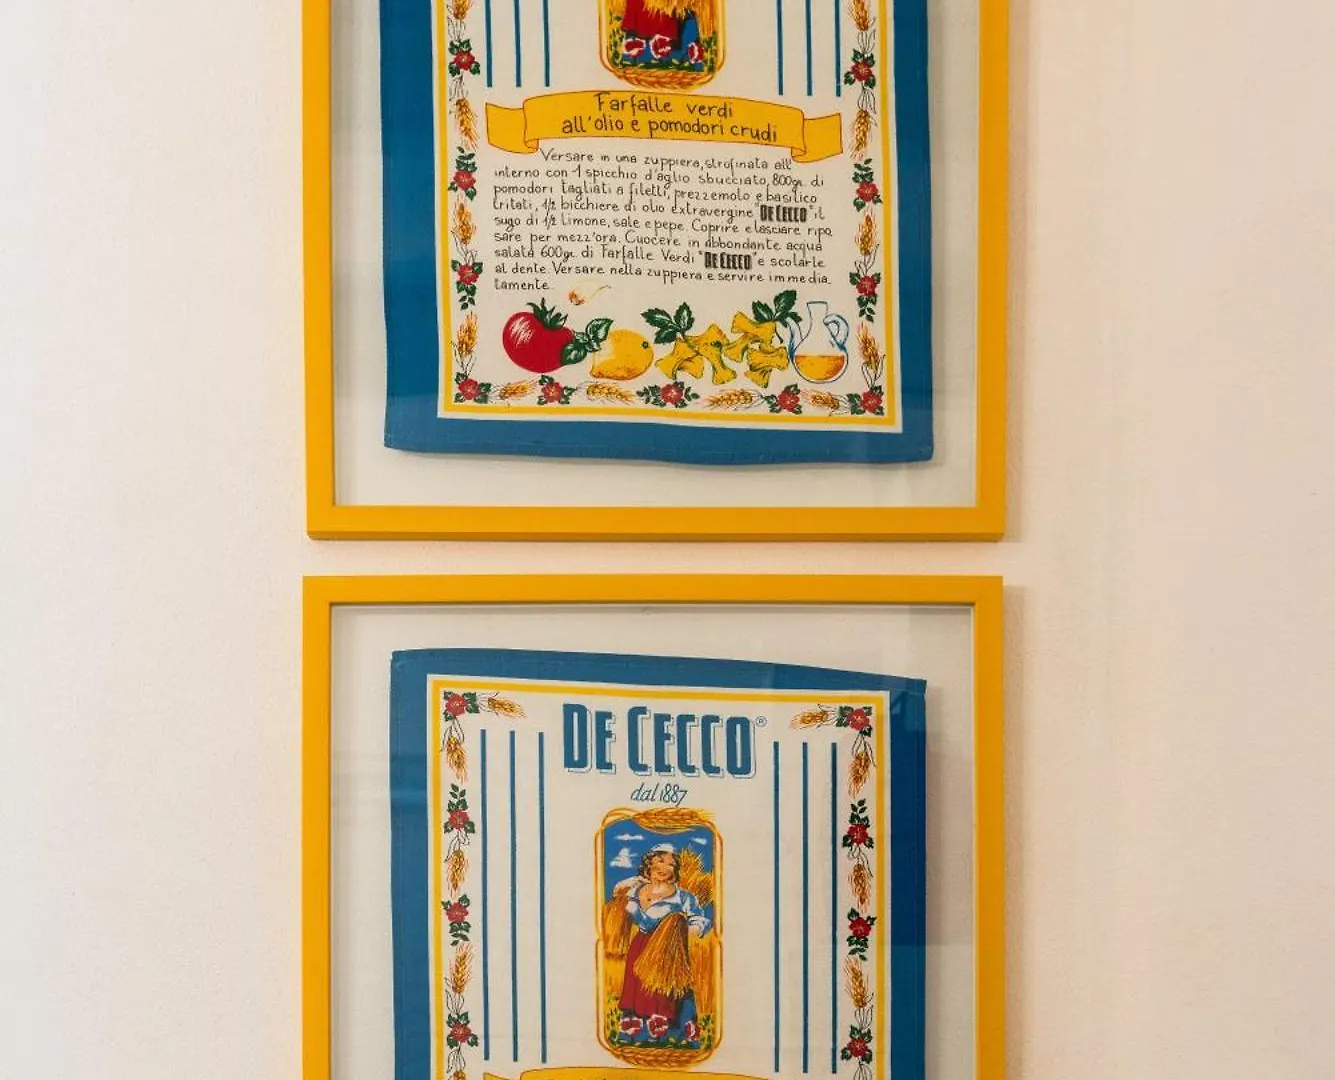 Farfalle verdi
all'olio e pomodori crudi
Versare in una zuppiera, strofinata all'
interno con 1 spicchio d'aglio sbucciato, 800gr. di
pomodori tagliati a filetti, prezzemolo e basilico
tritati, 1/2 bicchiere di olio extravergine "DE CECCO", il
sugo di 1/2 limone, sale e pepe. Coprire e lasciare ripo
sare per mezz'ora. Cuocere in abbondante acqua
salata 600gr. di Farfalle Verdi "DE CECCO" e scolarle
al dente. Versare nella zuppiera e servire immedia
tamente.
DE CECCO®
dal 1887